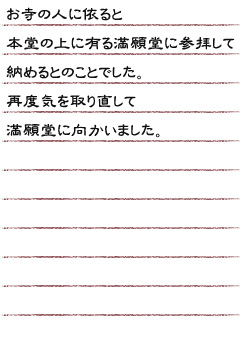 お寺の人に依ると
本堂の上に有る満願堂に参拝して
納めるとのことでした。
再度気を取り直して
満願堂に向かいました。